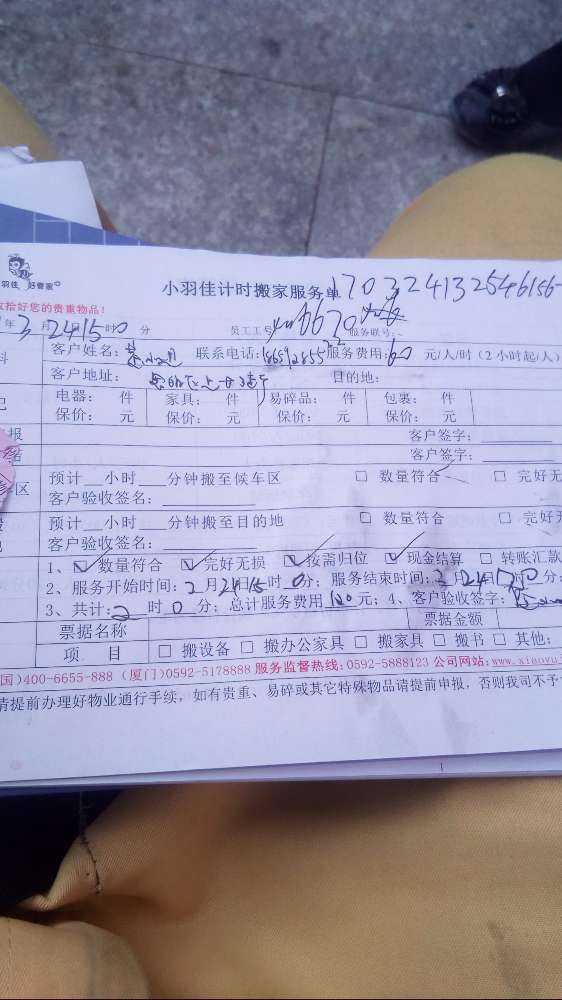 羽佳 好管家
小羽佳计时搬家服务单 170324132546156
收拾好您的贵重物品!
年 3 月 24 15 时 0 分 员工工号 6670 服务联号:
客户姓名: 联系电话: 服务费用: 60 元/人/时(2小时起/人)
客户地址: 目的地:
电器: 件 家具: 件 易碎品: 件 包裹: 件
保价: 元 保价: 元 保价: 元 保价: 元
客户签字:
客户签字:
预计 小时 分钟搬至候车区 □ 数量符合 □ 完好无
客户验收签名:
预计 小时 分钟搬至目的地 □ 数量符合 □ 完好无
客户验收签名:
1、☑ 数量符合 ☑ 完好无损 ☑ 按需归位 ☑ 现金结算 □ 转账汇款
2、服务开始时间: 月 24 日 15 时 0 分; 服务结束时间: 3 月 24 日 17 时 0 分;
3、共计: 2 时 0 分; 总计服务费用 元; 4、客户验收签字:
票据名称 票据金额
项 目 □ 搬设备 □ 搬办公家具 □ 搬家具 □ 搬书 □ 其他:
国)400-6655-888 (厦门)0592-5178888 服务监督热线:0592-5888123 公司网站:www.xiaoyu
请提前办理好物业通行手续,如有贵重、易碎或其它特殊物品请提前申报,否则我司不予
1